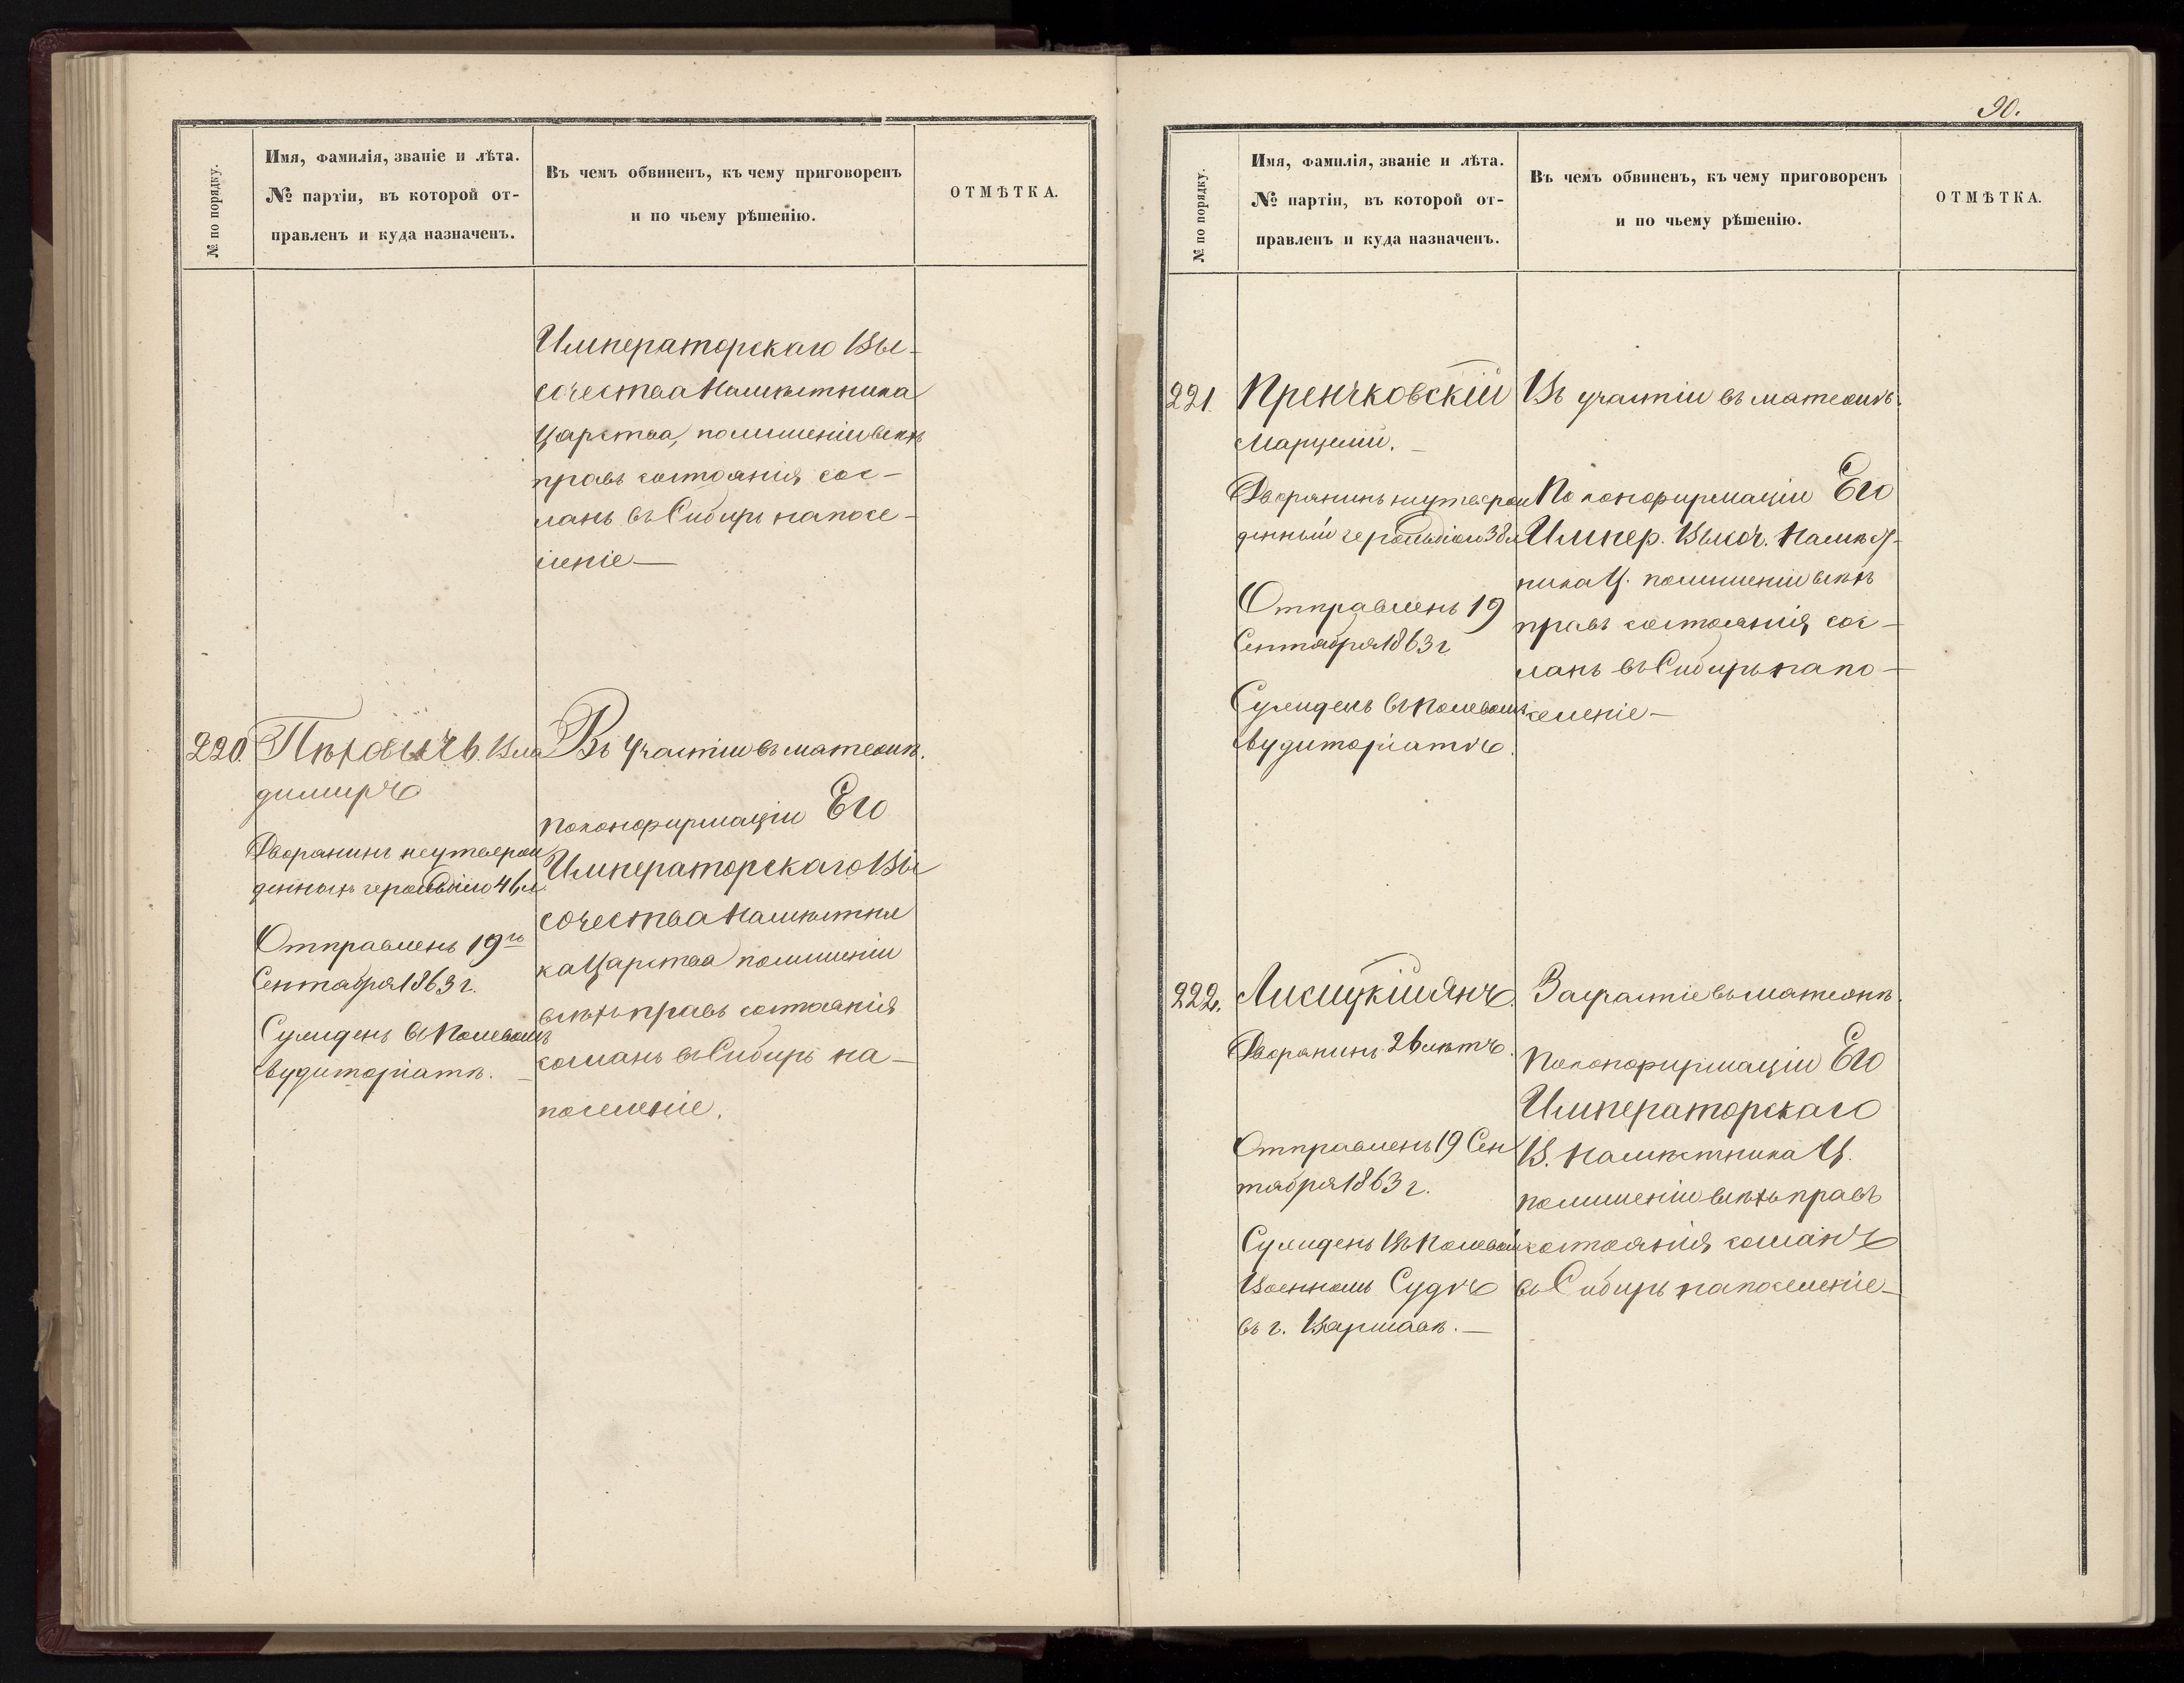 № по порядку.
Имя, фамилія, званіе и лѣта.
№ партіи, въ которой от-
правленъ и куда назначенъ.
Въ чемъ обвиненъ, къ чему приговоренъ
и по чьему рѣшенію.
ОТМѢТКА.
Императорскаго Вы-
сочества Намѣстника
Царства, по лишеніи всѣхъ
правъ состоянія сос-
ланъ въ Сибирь на посе-
леніе —
220. Вла
димиръ
Дворянинъ неутверж
денный герольдіею 46 л.
Отправленъ 19го
Сентября 1863 г.
Сужденъ въ Полевомъ
Аудиторіатѣ. —
Въ участіи въ мятежѣ.
По конфирмаціи Его
Императорскаго Вы
сочества Намѣстни
ка Царства по лишеніи
всѣхъ правъ состоянія
сосланъ въ Сибирь на —
поселеніе.
90.
№ по порядку.
Имя, фамилія, званіе и лѣта.
№ партіи, въ которой от-
правленъ и куда назначенъ.
Въ чемъ обвиненъ, къ чему приговоренъ
и по чьему рѣшенію.
ОТМѢТКА.
221. Пренчковскій
Марцелій. —
Дворянинъ неутверж
денный герольдіею 38 л
Отправленъ 19
Сентября 1863 г
Сужденъ въ Полевомъ
Аудиторіатѣ.
Въ участіи въ мятежѣ.
По конфирмаціи Его
Импер. Высоч. Намѣст-
ника Ц. по лишеніи всѣхъ
правъ состоянія сос —
ланъ въ Сибирь на по —
селеніе —
222. Лисицкій Янъ.
Дворянинъ 26 лѣтъ.
Отправленъ 19 Сен
тября 1863 г.
Сужденъ въ Полевом
Военномъ Судѣ
въ г. Варшавѣ. —
За участіе въ мятежѣ.
По конфирмаціи Его
Императорскаго
В. Намѣстника Ц.
по лишеніи всѣхъ правъ
состоянія сосланъ
въ Сибирь на поселеніе —